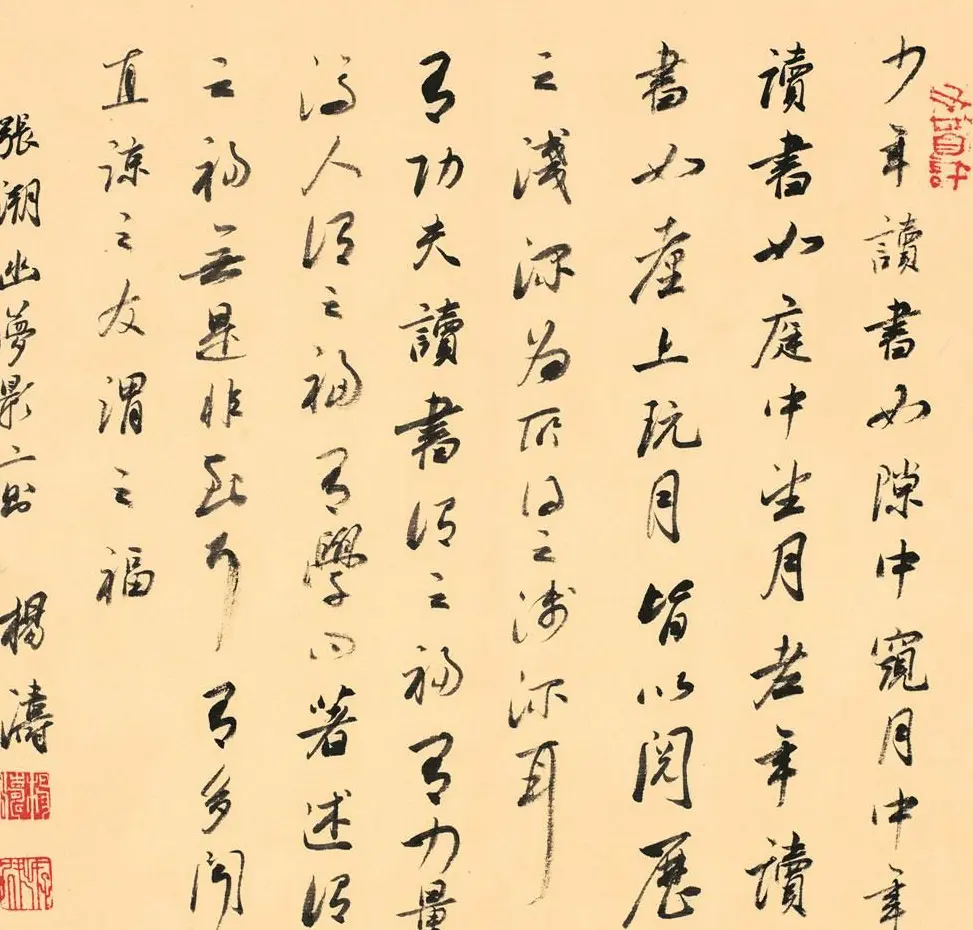 少年讀書如隙中窺月中年
讀書如庭中望月老年讀
書如臺上玩月皆以閱歷
之淺深為所得之淺深耳
有功夫讀書謂之福有力量
濟人謂之福有學問著述謂
之福無是非到耳有多聞
直諒之友謂之福
張潮幽夢影二則 楊濤